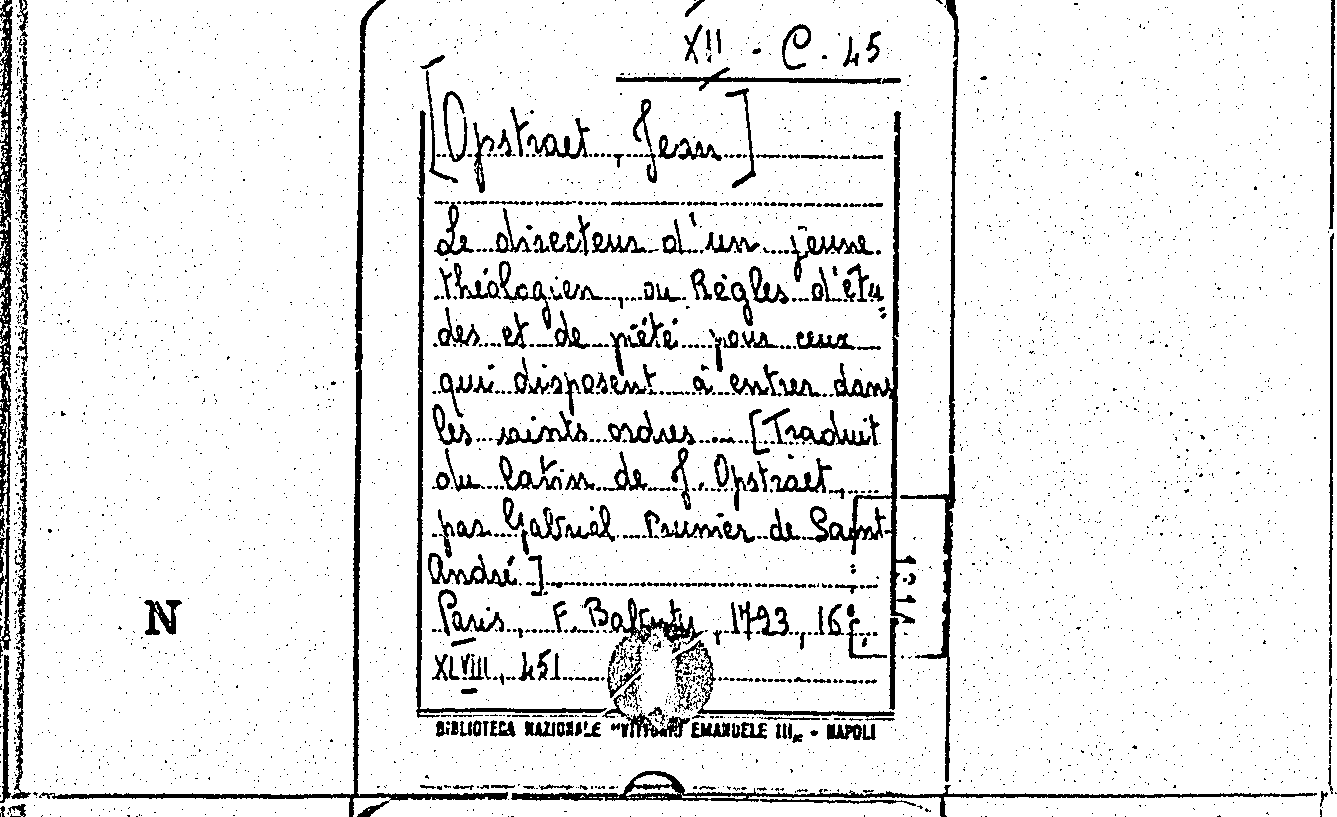 XII - C. 45
[Opstraet, Jean]
Le directeur d'un jeune
théologien, ou Règles d'étu„
des et de piété pour ceux
qui disposent à entrer dans
les saints ordres ... [Traduit
du latin de J. Opstraet,
par Gabriel Prunier de Saint-
André].
Paris, F. , 1723, 16°.
XLVIII, 451
BIBLIOTECA NAZIONALE "VITTORIO EMANUELE III„ - NAPOLI
N